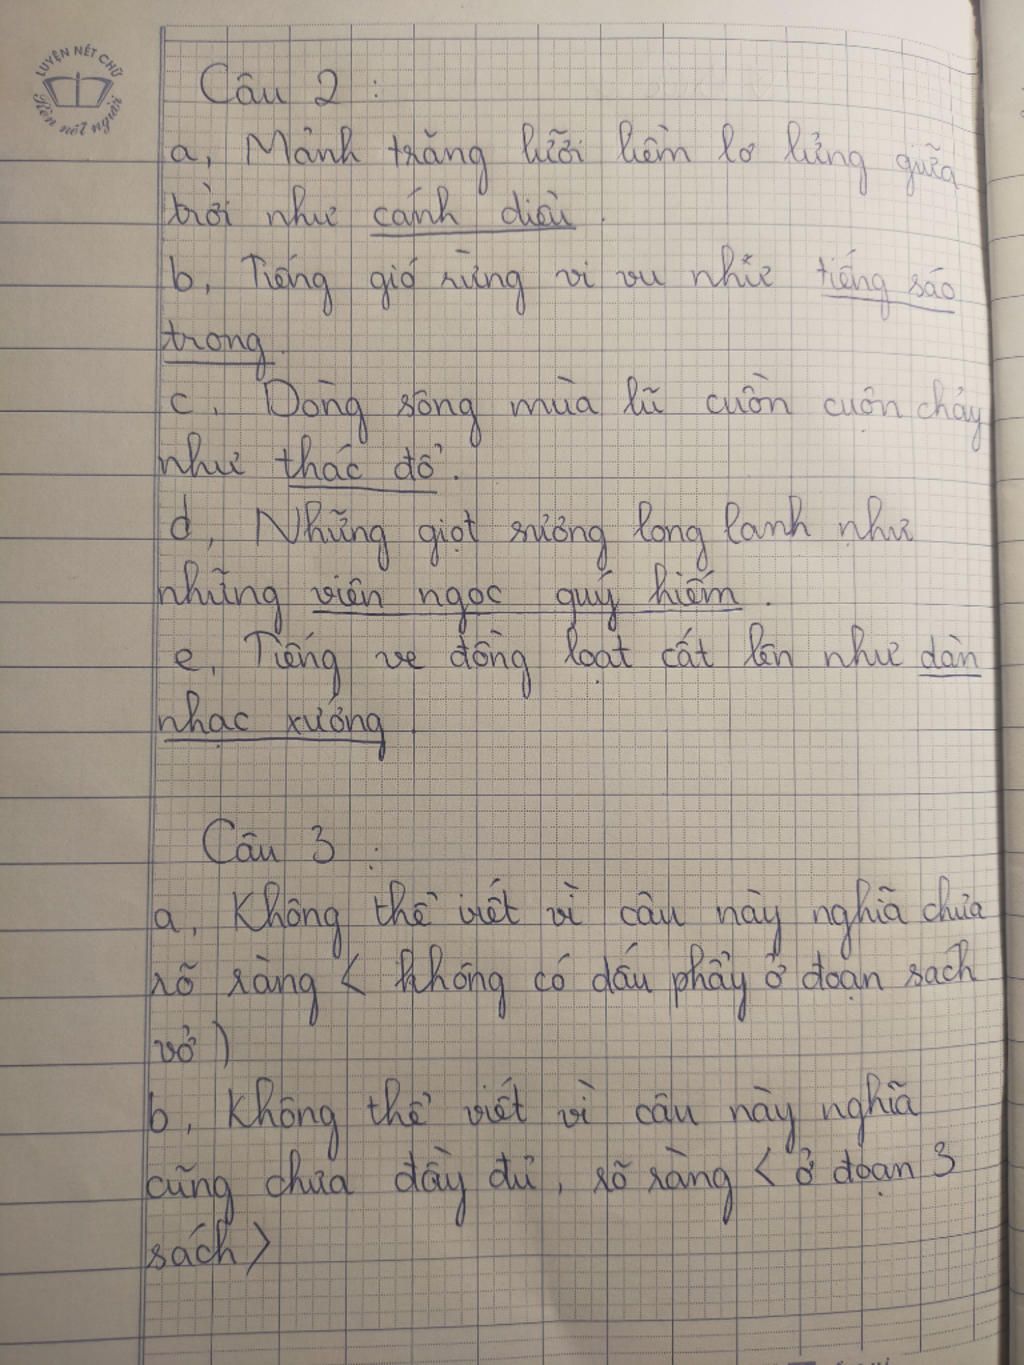 LUYỆN NÉT CHỮ
Rèn nết người
Câu 2 :
a, Mảnh trăng lưỡi liềm lơ lửng giữa
trời như cánh diều.
b, Tiếng gió rừng vi vu như tiếng sáo
trong.
c, Dòng sông mùa lũ cuồn cuộn chảy
như thác đổ.
d, Những giọt sương long lanh như
những viên ngọc quý hiếm.
e, Tiếng ve đồng loạt cất lên như dàn
nhạc xướng.
Câu 3 :
a, Không thể viết vì câu này nghĩa chưa
rõ ràng < không có dấu phẩy ở đoạn sách
vở )
b, Không thể viết vì câu này nghĩa
cũng chưa đầy đủ, rõ ràng < ở đoạn 3
sách >